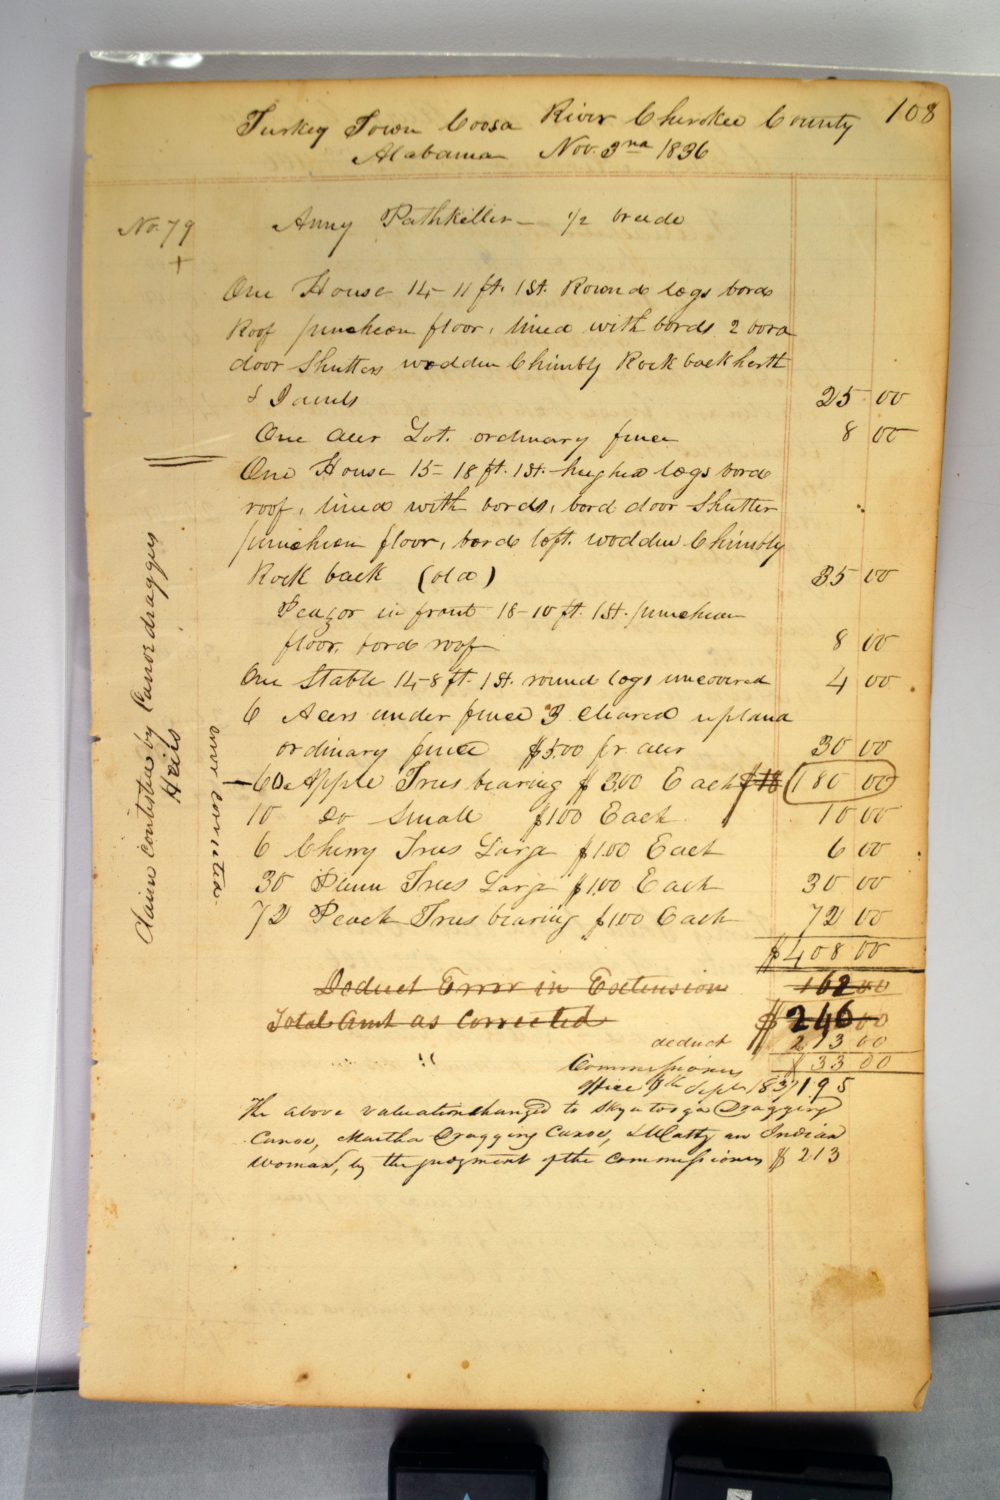 108
Turkey Town Coosa River Cherokee County
Alabama Nov. 3rd 1836
No. 79 Anny Pathkiller - 1/2 breed
+
One House 14-11 ft. 1 St. Round logs bord
Roof puncheon floor, lined with bords 2 bord
door Shutters wodden Chimbly Rock back herth
& Jambs 25 00
One acer Lot. ordinary fence 8 00
One House 15-18 ft. 1 St. hughed logs bord
roof, lined with bords, bord door Shutter
puncheon floor, bord loft. wodden Chimbly
Rock back (old) 35 00
Peazor in front 18-10 ft. 1 St. puncheon
floor. bord roof 8 00
One Stable 14-8 ft. 1 St. round logs uncovered 4 00
6 Acers under fence 3 cleared upland
ordinary fence $5.00 pr. acer 30 00
60 Apple Trees bearing $3.00 Each $18 180 00
10 Do Small $1.00 Each 10 00
6 Cherry Trees Large $1.00 Each 6 00
30 Plum Trees Large $1.00 Each 30 00
72 Peach Trees bearing $1.00 Each 72 00
$408 00
Deduct Error in Extension 162 00
Total Amt as Corrected $246 00
deduct 213 00
" $33 00
Commissioners
office 9th Septr 1837 195
The above valuation changed to Skyatooga Dragging
Canoe, Martha Dragging Canoe, & Watty an Indian
Woman, by the judgment of the Commissioners $213
Claim contested by Canoe dragging
Heirs
error corrected